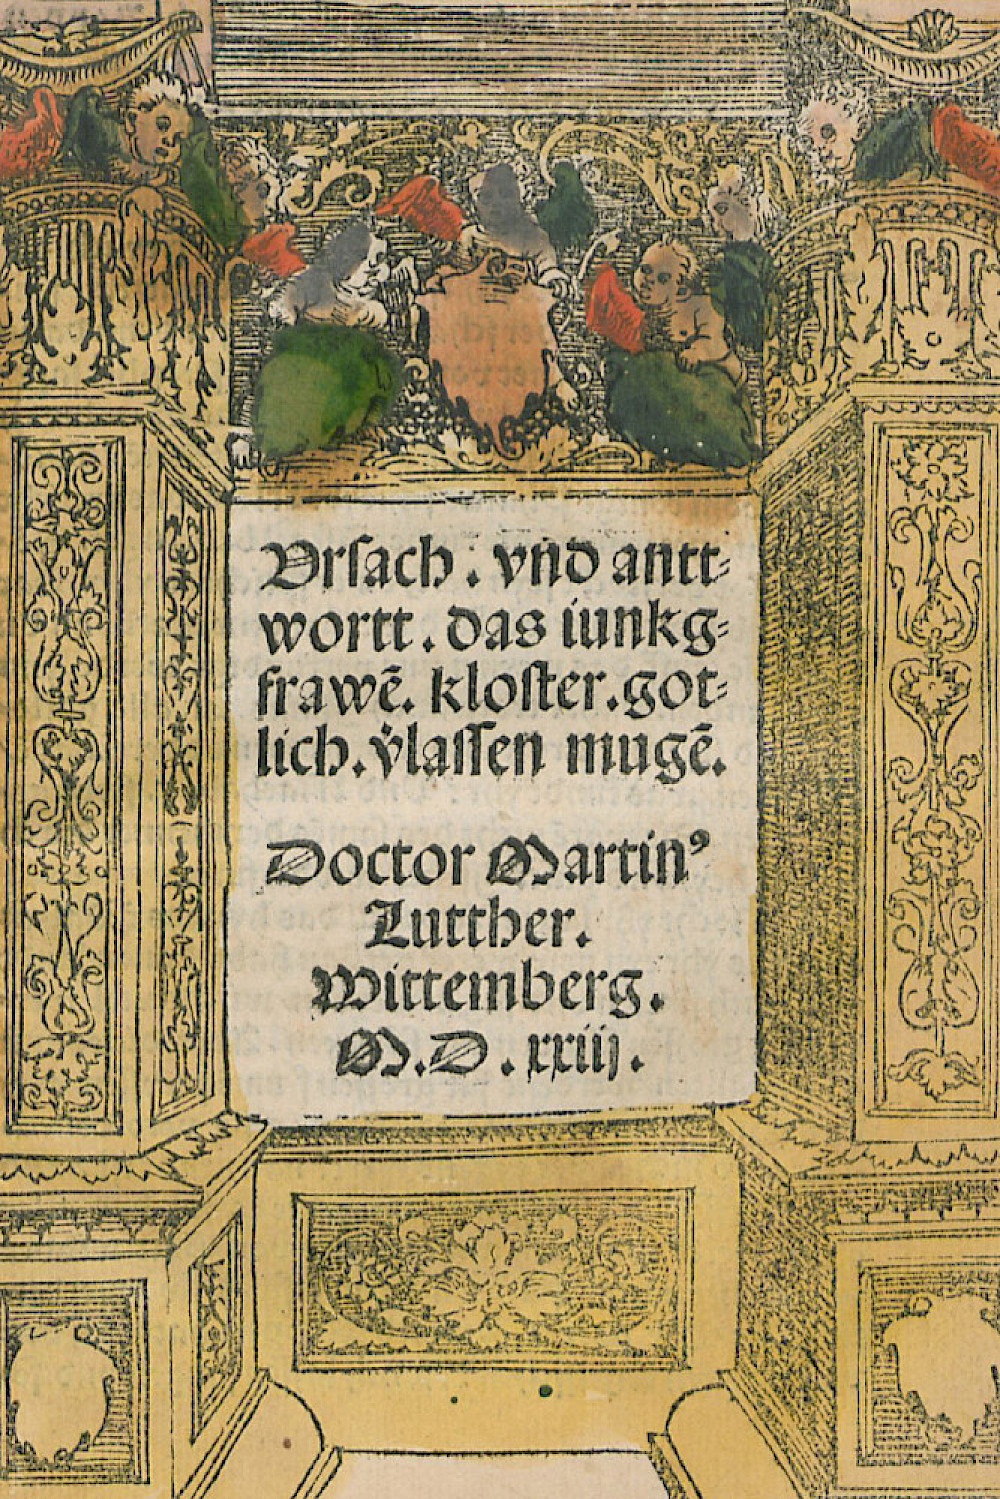 Vrſach . vnd antt⸗
wortt . das iunkg⸗
frawē. kloſter . got⸗
lich . v̈laſſen mugē.
Doctor Martinꝰ
Lutther.
Wittemberg.
M.D.xxiij.